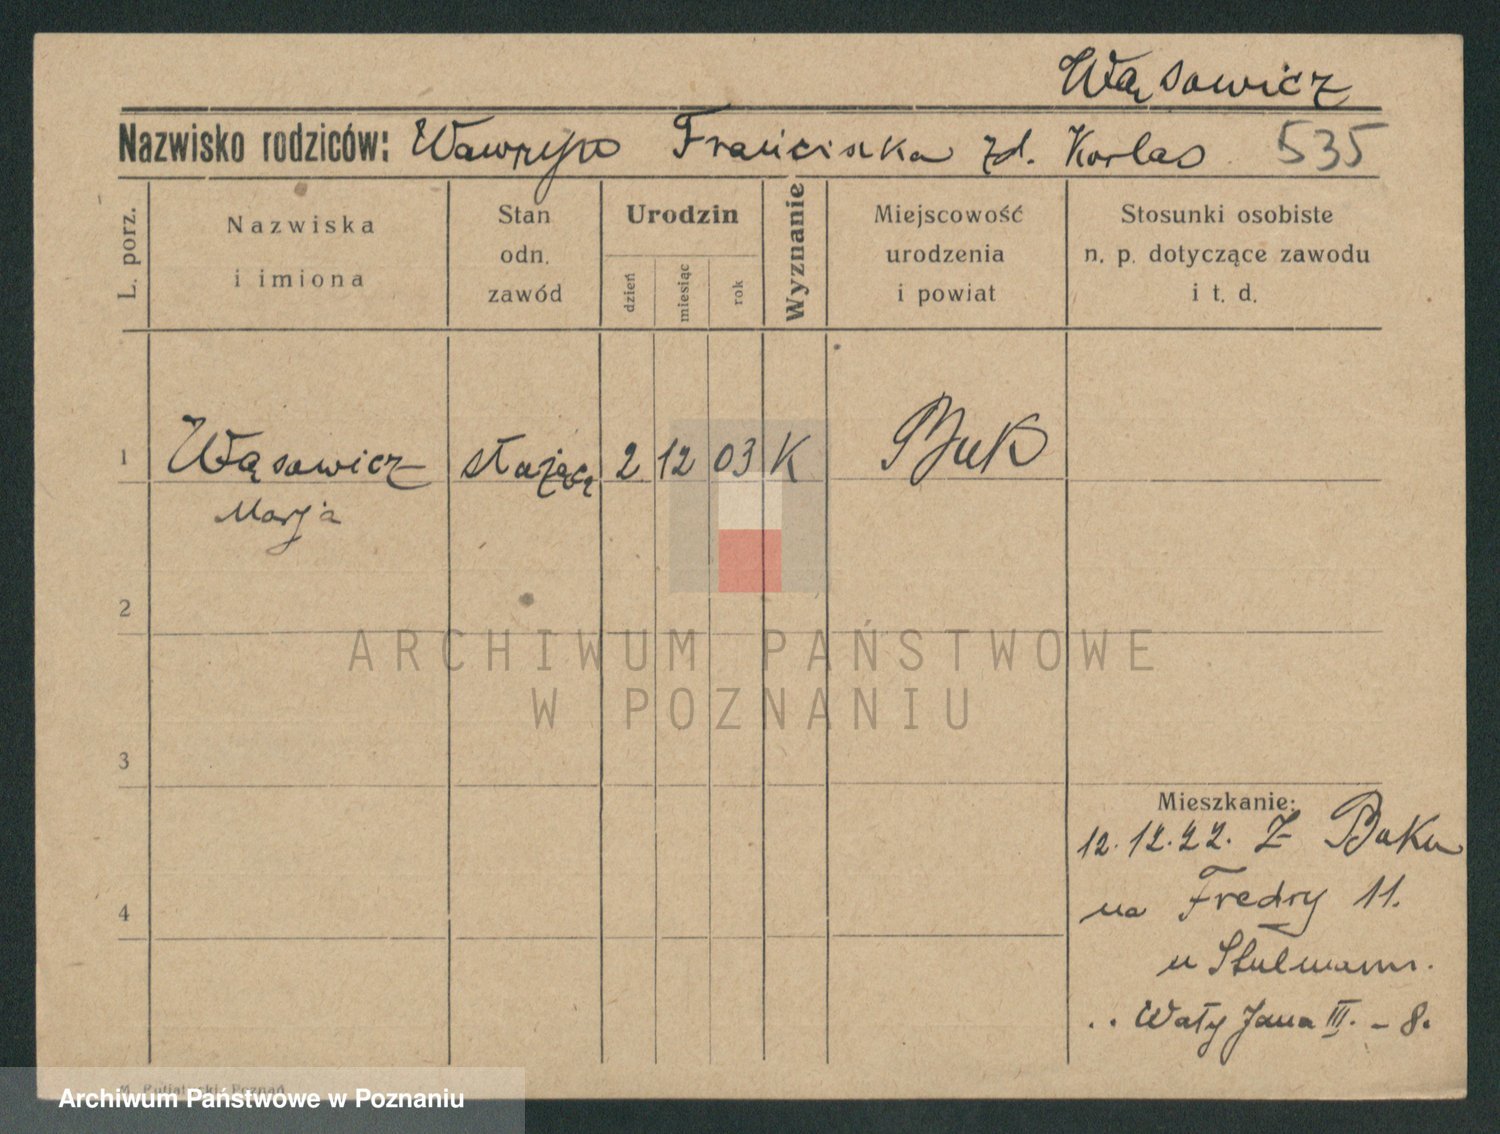 Wąsowicz
Nazwisko rodziców: Wawrzyn Franciszka zd. Korlas 535
L. porz.
Nazwiska
i imiona
Stan
odn.
zawód
Urodzin
dzień
miesiąc
rok
Wyznanie
Miejscowość
urodzenia
i powiat
Stosunki osobiste
n. p. dotyczące zawodu
i t. d.
1 Wąsowicz służąca 2 12 03 K Buk
Marja
2
ARCHIWUM PAŃSTWOWE
W POZNANIU
3
Mieszkanie:
12.12.22. Z Buku
4
na Fredry 11.
u Stulmann.
.. Wały Jana III. - 8.
Poznań
Archiwum Państwowe w Poznaniu